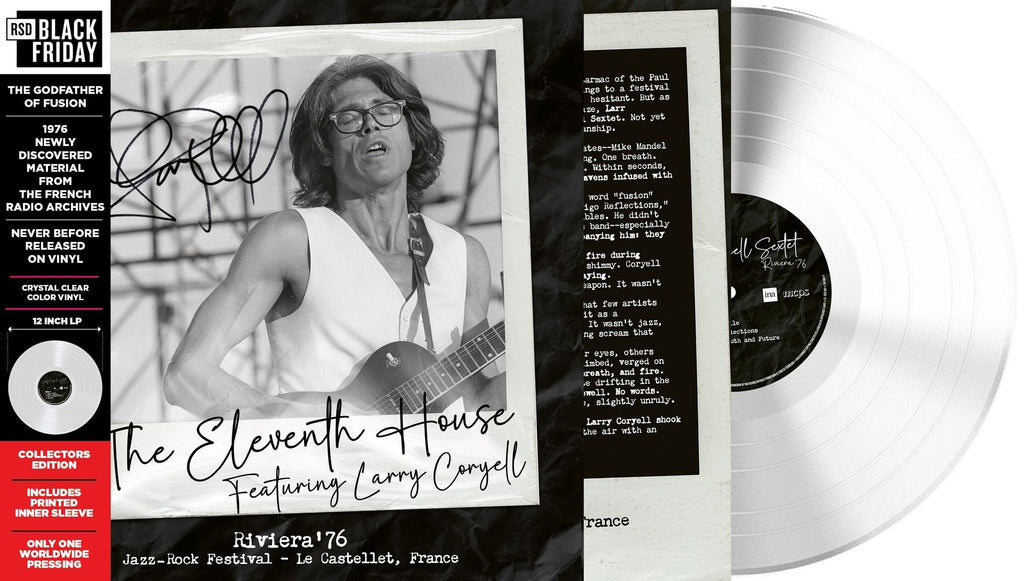 RSD BLACK
FRIDAY
THE GODFATHER
OF FUSION
1976
NEWLY
DISCOVERED
MATERIAL
FROM
THE FRENCH
RADIO ARCHIVES
NEVER BEFORE
RELEASED
ON VINYL
CRYSTAL CLEAR
COLOR VINYL
12 INCH LP
COLLECTORS
EDITION
INCLUDES
PRINTED
INNER SLEEVE
ONLY ONE
WORLDWIDE
PRESSING
The Eleventh House
Featuring Larry Coryell
Riviera'76
Jazz-Rock Festival - Le Castellet, France
armac of the Paul
ngs to a festival
hesitant. But as
ze, Larr
l Sextet. Not yet
anship.
ates--Mike Mandel
ng. One breath.
. Within seconds,
avens infused with
word "fusion"
igo Reflections,"
bles. He didn't
band--especially
anying him: they
fire during
shimmy. Coryell
aying.
eapon. It wasn't
hat few artists
it as a
It wasn't jazz,
ng scream that
r eyes, others
imbed, verged on
reath, and fire.
e drifting in the
well. No words.
, slightly unruly.
Larry Coryell shook
the air with an
France
ell Sextet
Riviera '76
ina mcps
le
lections
ath and Future